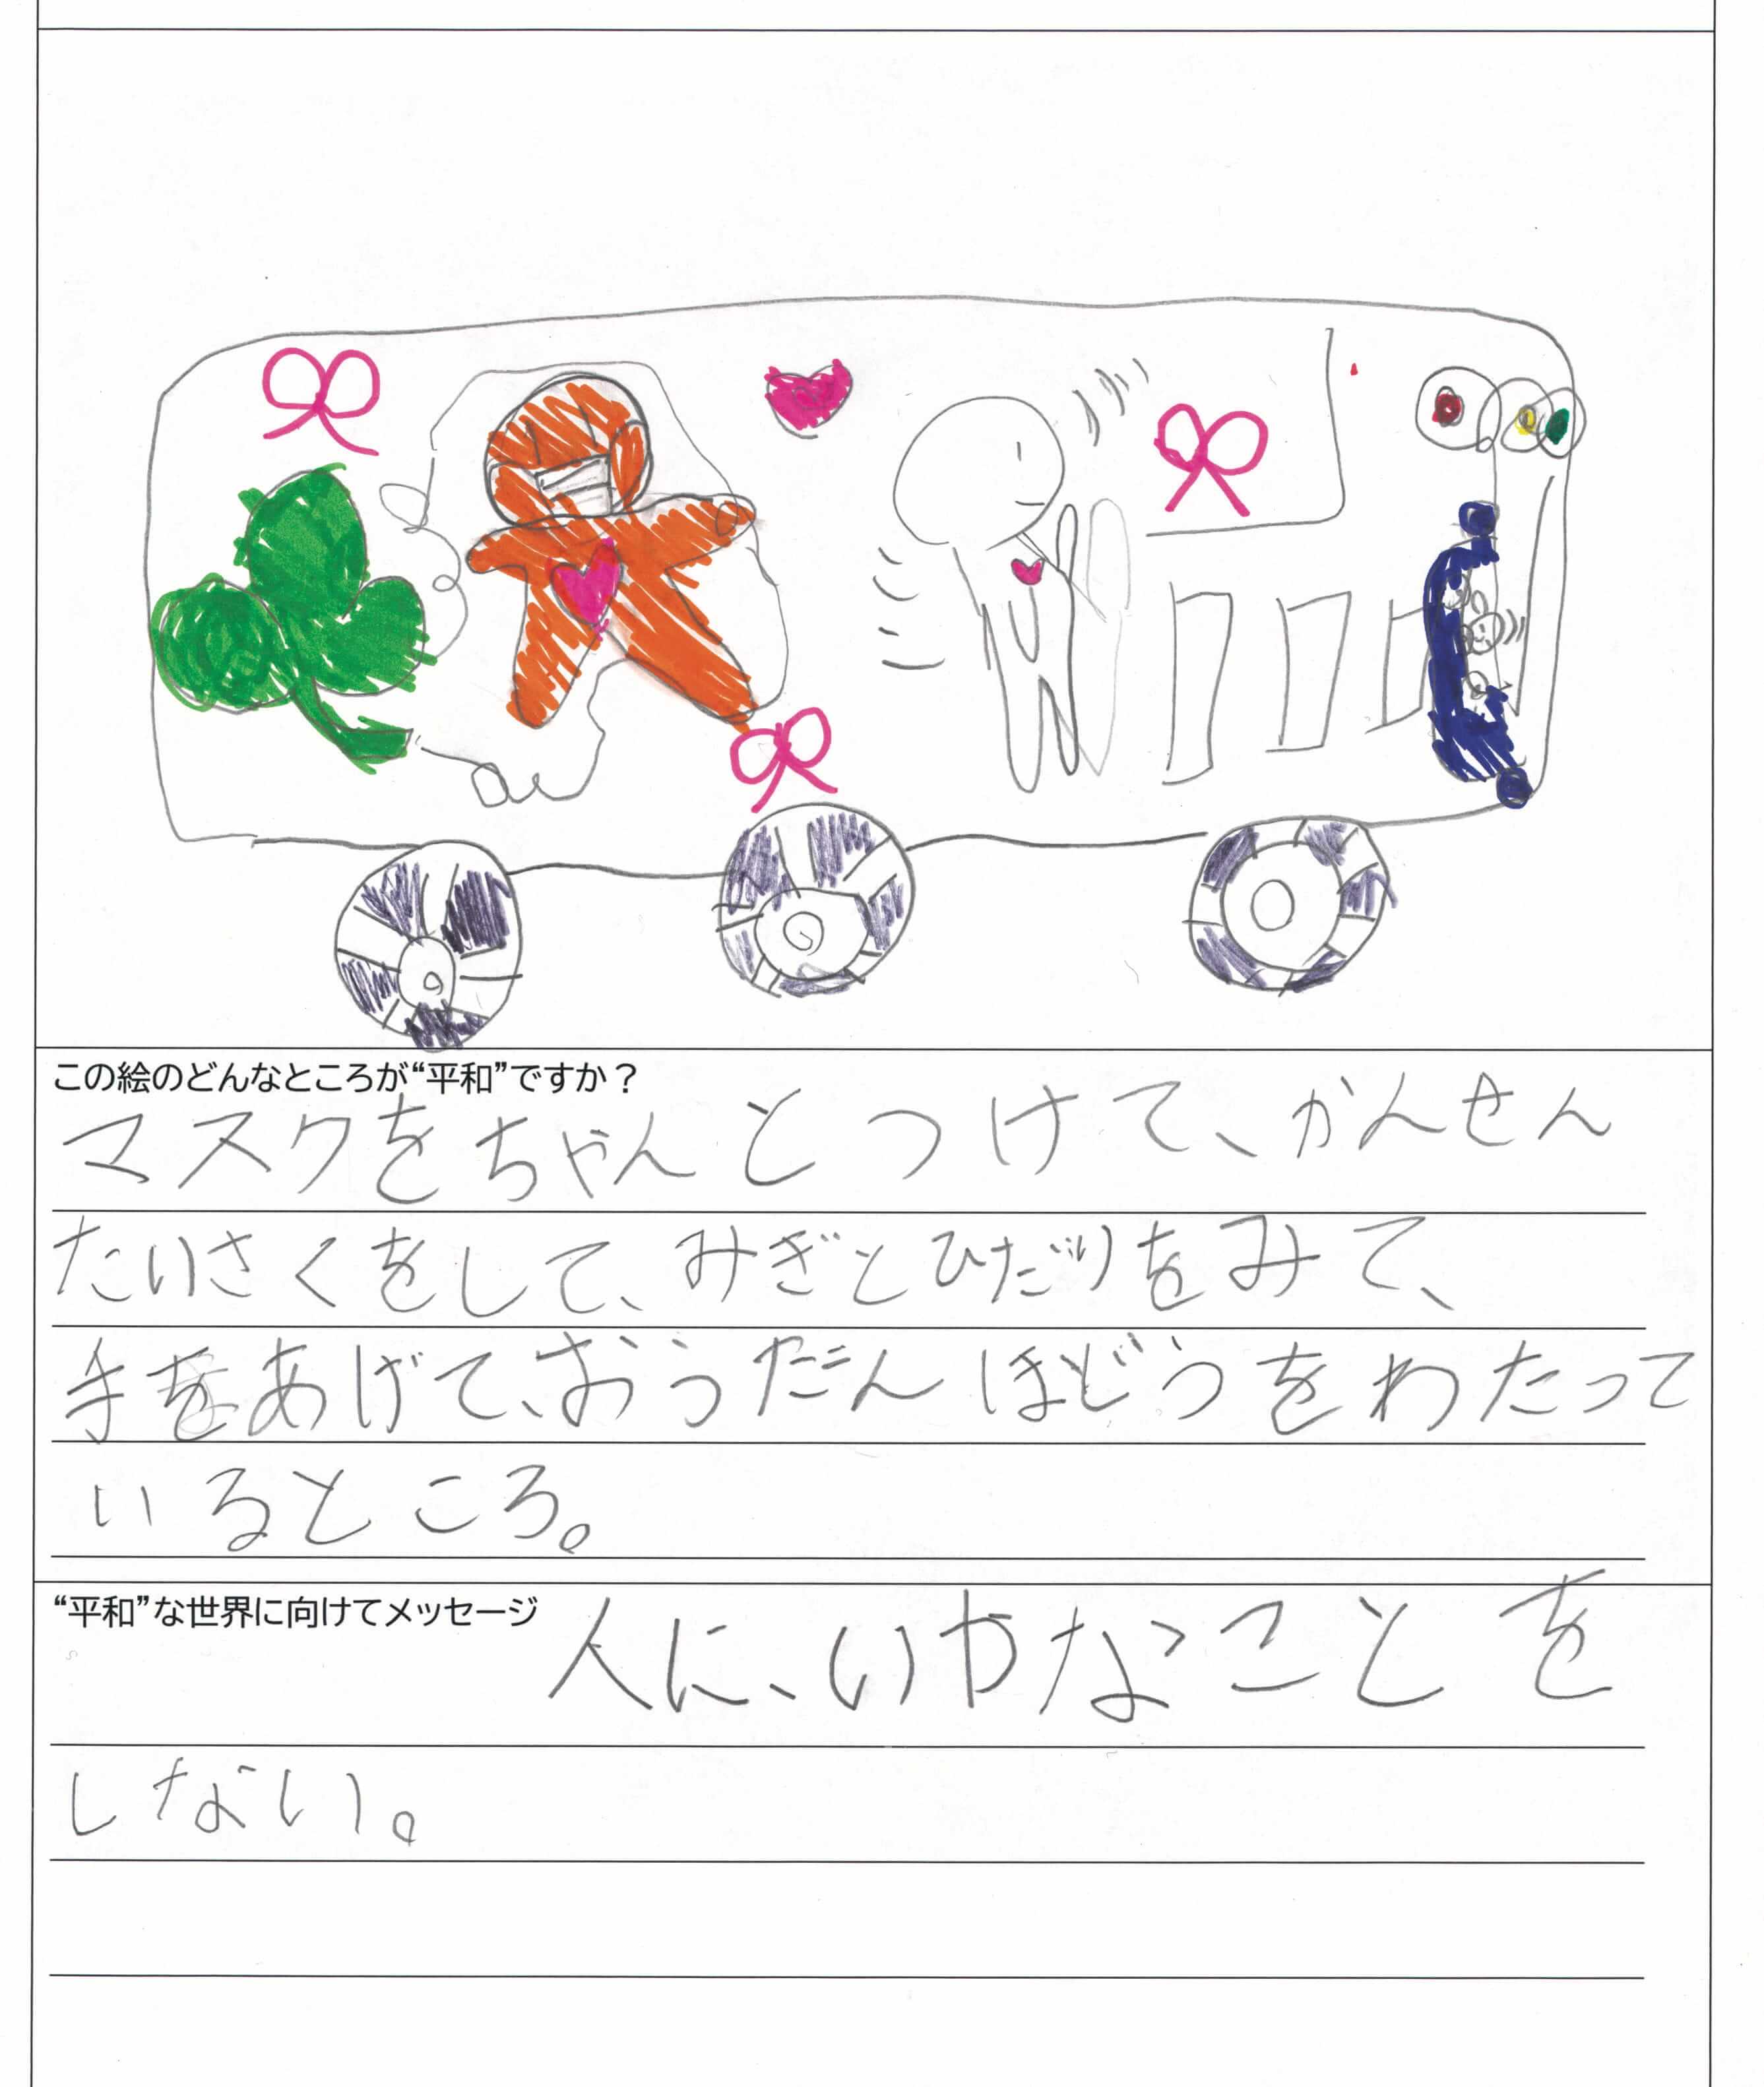 この絵のどんなところが“平和”ですか？
マスクをちゃんとつけて、かんせん
たいさくをして、みぎとひだりをみて、
手をあげて、おうだんほどうをわたって
いるところ。
“平和”な世界に向けてメッセージ
人に、いやなことを
しない。